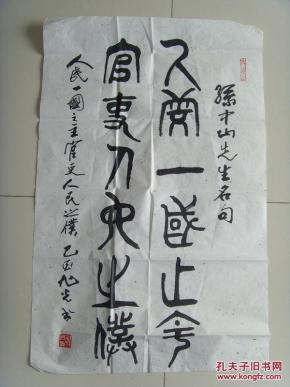 孙中山先生名句
人民一国之主
官吏人民之仆
人民一國之主官吏人民之僕 乙酉
孔夫子旧书网